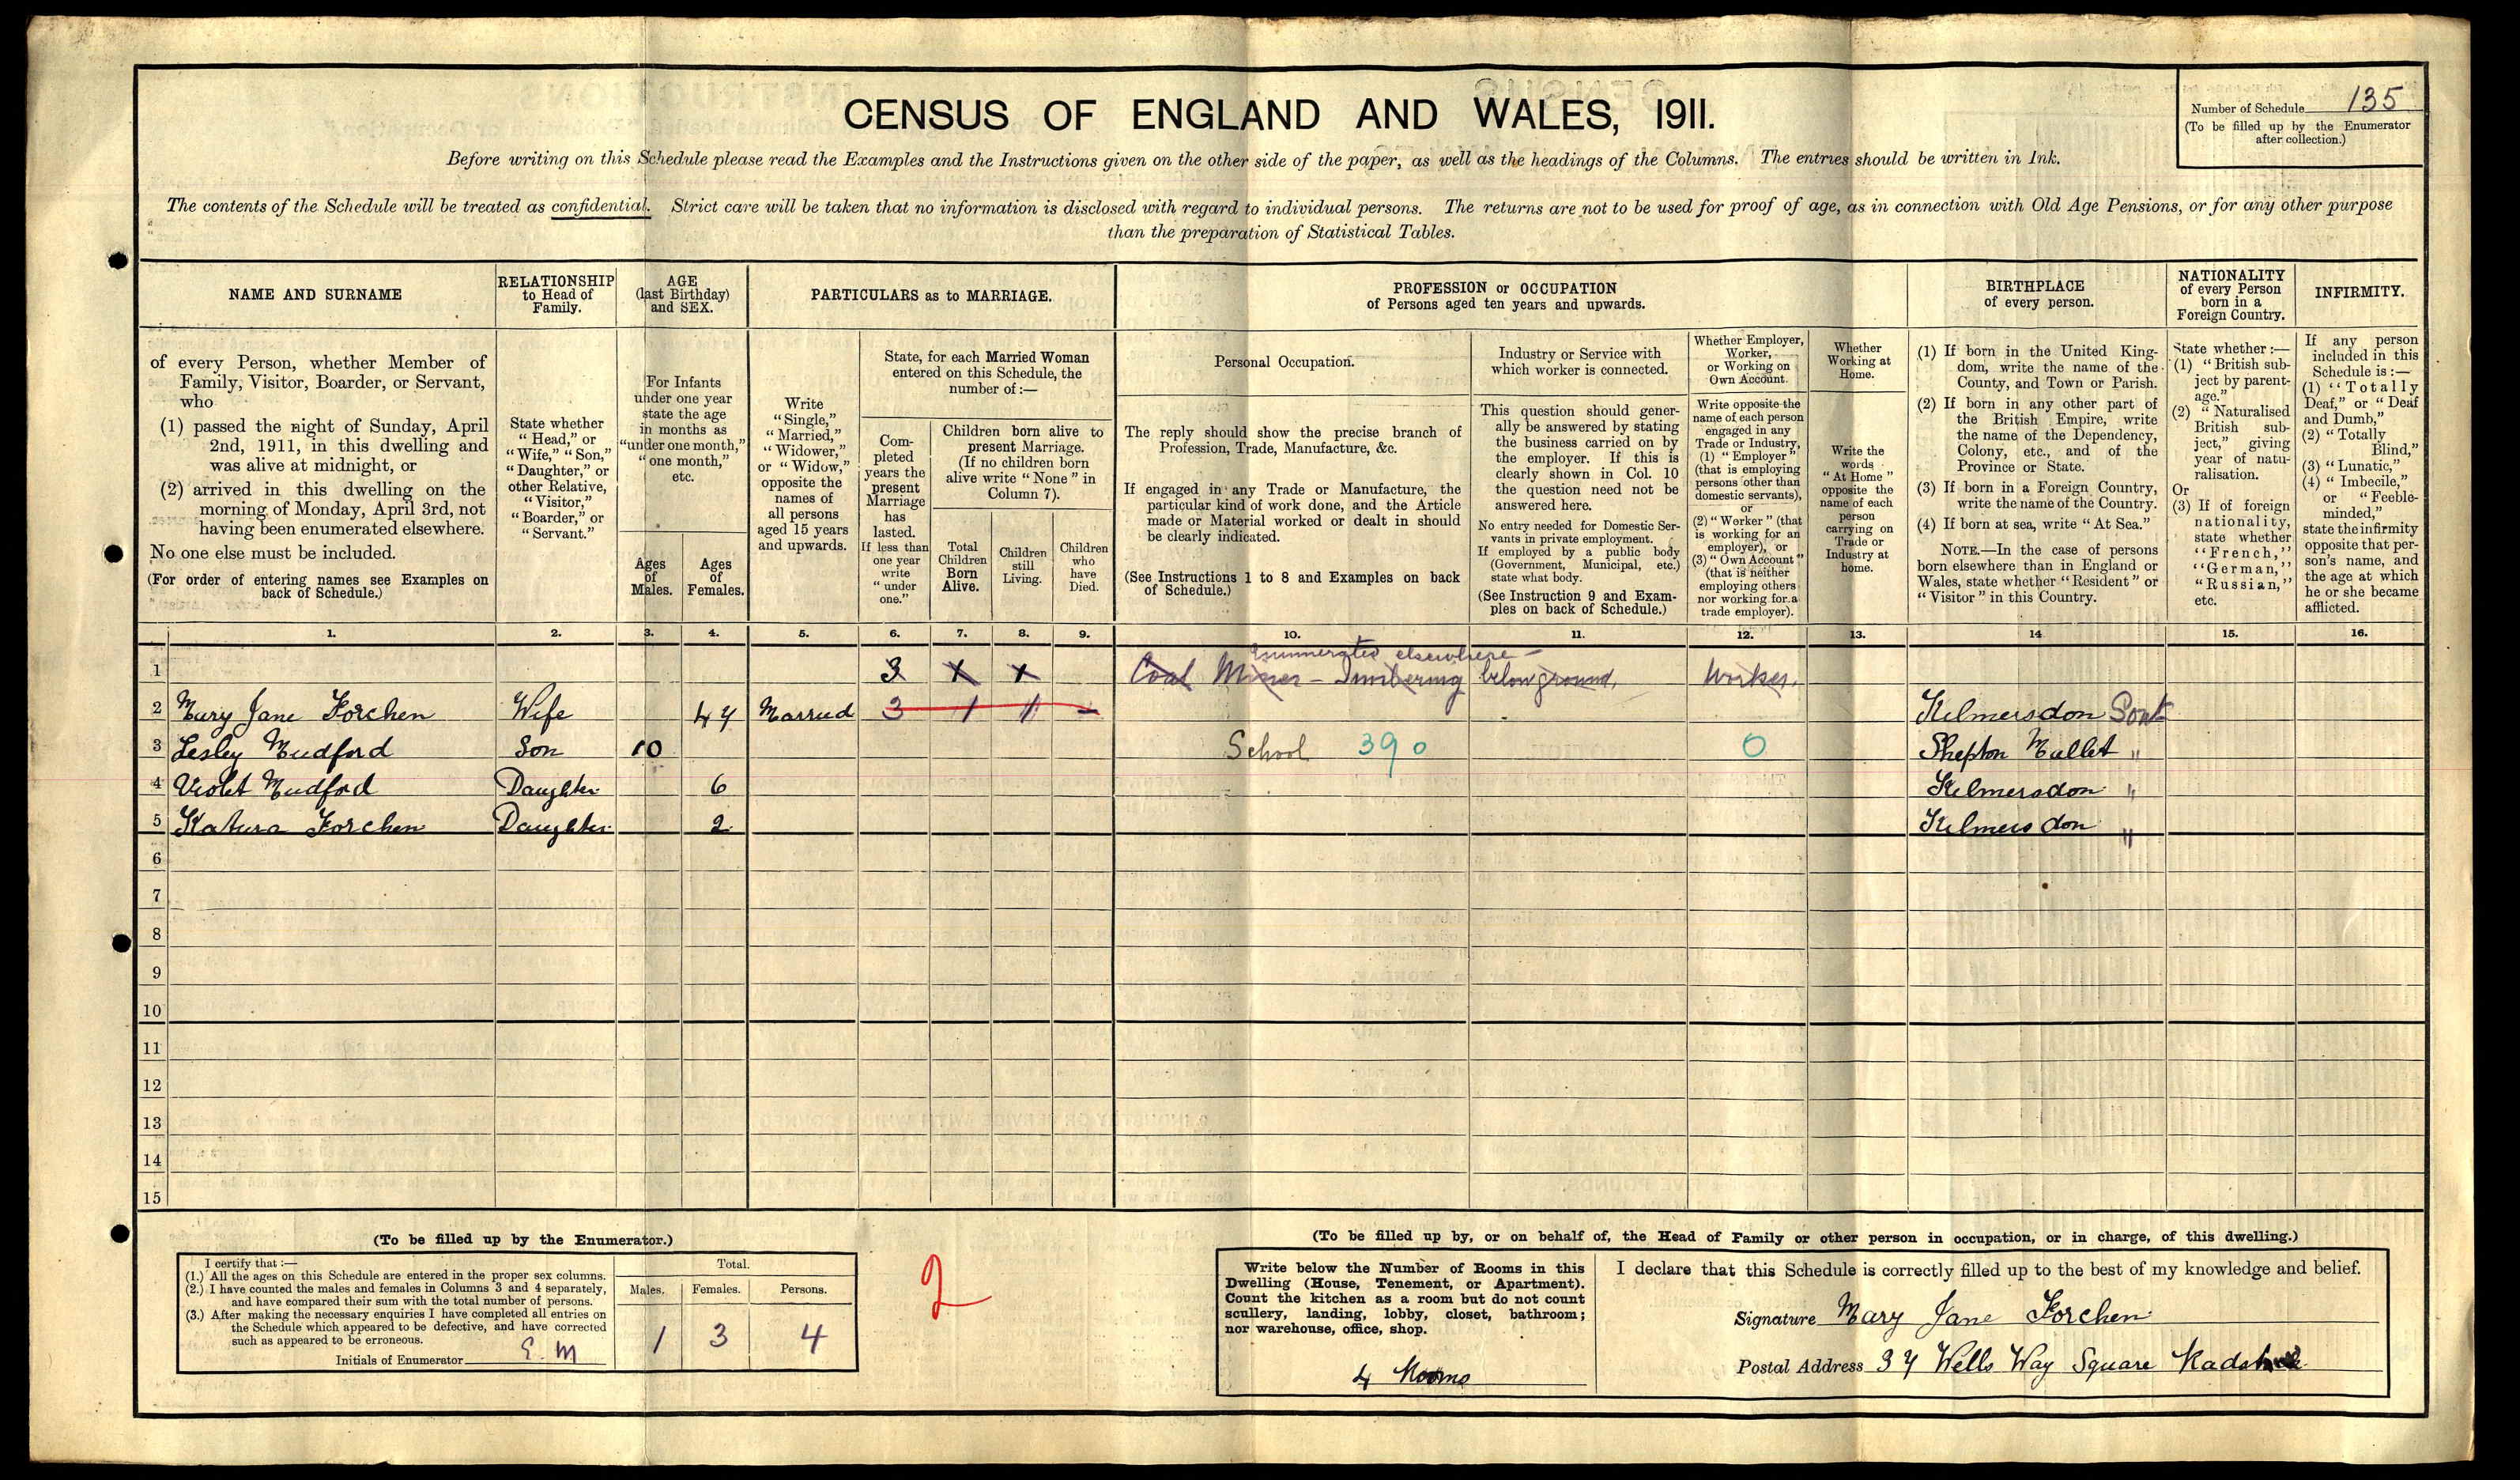 CENSUS OF ENGLAND AND WALES, 1911.
Number of Schedule 135
(To be filled up by the Enumerator
after collection.)
Before writing on this Schedule please read the Examples and the Instructions given on the other side of the paper, as well as the headings of the Columns. The entries should be written in Ink.
The contents of the Schedule will be treated as confidential. Strict care will be taken that no information is disclosed with regard to individual persons. The returns are not to be used for proof of age, as in connection with Old Age Pensions, or for any other purpose
than the preparation of Statistical Tables.
NAME AND SURNAME
of every Person, whether Member of
Family, Visitor, Boarder, or Servant,
who
(1) passed the night of Sunday, April
2nd, 1911, in this dwelling and
was alive at midnight, or
(2) arrived in this dwelling on the
morning of Monday, April 3rd, not
having been enumerated elsewhere.
No one else must be included.
(For order of entering names see Examples on
back of Schedule.)
RELATIONSHIP
to Head of
Family.
State whether
"Head," or
"Wife," "Son,"
"Daughter," or
other Relative,
"Visitor,"
"Boarder," or
"Servant."
AGE
(last Birthday)
and SEX.
For Infants
under one year
state the age
in months as
"under one month,"
"one month,"
etc.
Ages
of
Males.
Ages
of
Females.
PARTICULARS as to MARRIAGE.
Write
"Single,"
"Married,"
"Widower,"
or "Widow,"
opposite the
names of
all persons
aged 15 years
and upwards.
State, for each Married Woman
entered on this Schedule, the
number of:—
Com-
pleted
years the
present
Marriage
has
lasted.
If less than
one year
write
"under
one."
Children born alive to
present Marriage.
(If no children born
alive write "None" in
Column 7).
Total
Children
Born
Alive.
Children
still
Living.
Children
who
have
Died.
PROFESSION or OCCUPATION
of Persons aged ten years and upwards.
Personal Occupation.
The reply should show the precise branch of
Profession, Trade, Manufacture, &c.
If engaged in any Trade or Manufacture, the
particular kind of work done, and the Article
made or Material worked or dealt in should
be clearly indicated.
(See Instructions 1 to 8 and Examples on back
of Schedule.)
Industry or Service with
which worker is connected.
This question should gener-
ally be answered by stating
the business carried on by
the employer. If this is
clearly shown in Col. 10
the question need not be
answered here.
No entry needed for Domestic Ser-
vants in private employment.
If employed by a public body
(Government, Municipal, etc.)
state what body.
(See Instruction 9 and Exam-
ples on back of Schedule.)
Whether Employer,
Worker,
or Working on
Own Account.
Write opposite the
name of each person
engaged in any
Trade or Industry,
(1) "Employer"
(that is employing
persons other than
domestic servants),
or
(2) "Worker" (that
is working for an
employer), or
(3) "Own Account"
(that is neither
employing others
nor working for a
trade employer).
Whether
Working at
Home.
Write the
words
"At Home"
opposite the
name of each
person
carrying on
Trade or
Industry at
home.
BIRTHPLACE
of every person.
(1) If born in the United King-
dom, write the name of the
County, and Town or Parish.
(2) If born in any other part of
the British Empire, write
the name of the Dependency,
Colony, etc., and of the
Province or State.
(3) If born in a Foreign Country,
write the name of the Country.
(4) If born at sea, write "At Sea."
NOTE.—In the case of persons
born elsewhere than in England or
Wales, state whether "Resident" or
"Visitor" in this Country.
NATIONALITY
of every Person
born in a
Foreign Country.
State whether:—
(1) "British sub-
ject by parent-
age."
(2) "Naturalised
British sub-
ject," giving
year of natu-
ralisation.
Or
(3) If of foreign
nationality,
state whether
"French,"
"German,"
"Russian,"
etc.
INFIRMITY.
If any person
included in this
Schedule is:—
(1) "Totally
Deaf," or "Deaf
and Dumb,"
(2) "Totally
Blind,"
(3) "Lunatic,"
(4) "Imbecile,"
or "Feeble-
minded,"
state the infirmity
opposite that per-
son's name, and
the age at which
he or she became
afflicted.
1. 2. 3. 4. 5. 6. 7. 8. 9. 10. 11. 12. 13. 14 15. 16.
Enumerated elsewhere —
1 3 Coal Miner - Timbering below ground. Worker.
2 Mary Jane Forchen Wife 47 Married 3 1 1 – Kilmersdon Somt
3 Lesley Mudford Son 10 School 390 0 Shepton Mallet "
4 Violet Mudford Daughter 6 Kilmersdon "
5 Katura Forchen Daughter 2 Kilmersdon "
6
7
8
9
10
11
12
13
14
15
(To be filled up by the Enumerator.)
I certify that:—
(1.) All the ages on this Schedule are entered in the proper sex columns.
(2.) I have counted the males and females in Columns 3 and 4 separately,
and have compared their sum with the total number of persons.
(3.) After making the necessary enquiries I have completed all entries on
the Schedule which appeared to be defective, and have corrected
such as appeared to be erroneous.
Initials of Enumerator E. M
Total.
Males. Females. Persons.
1 3 4
2
(To be filled up by, or on behalf of, the Head of Family or other person in occupation, or in charge, of this dwelling.)
Write below the Number of Rooms in this
Dwelling (House, Tenement, or Apartment).
Count the kitchen as a room but do not count
scullery, landing, lobby, closet, bathroom;
nor warehouse, office, shop.
4 Rooms
I declare that this Schedule is correctly filled up to the best of my knowledge and belief.
Signature Mary Jane Forchen
Postal Address 37 Wells Way Square